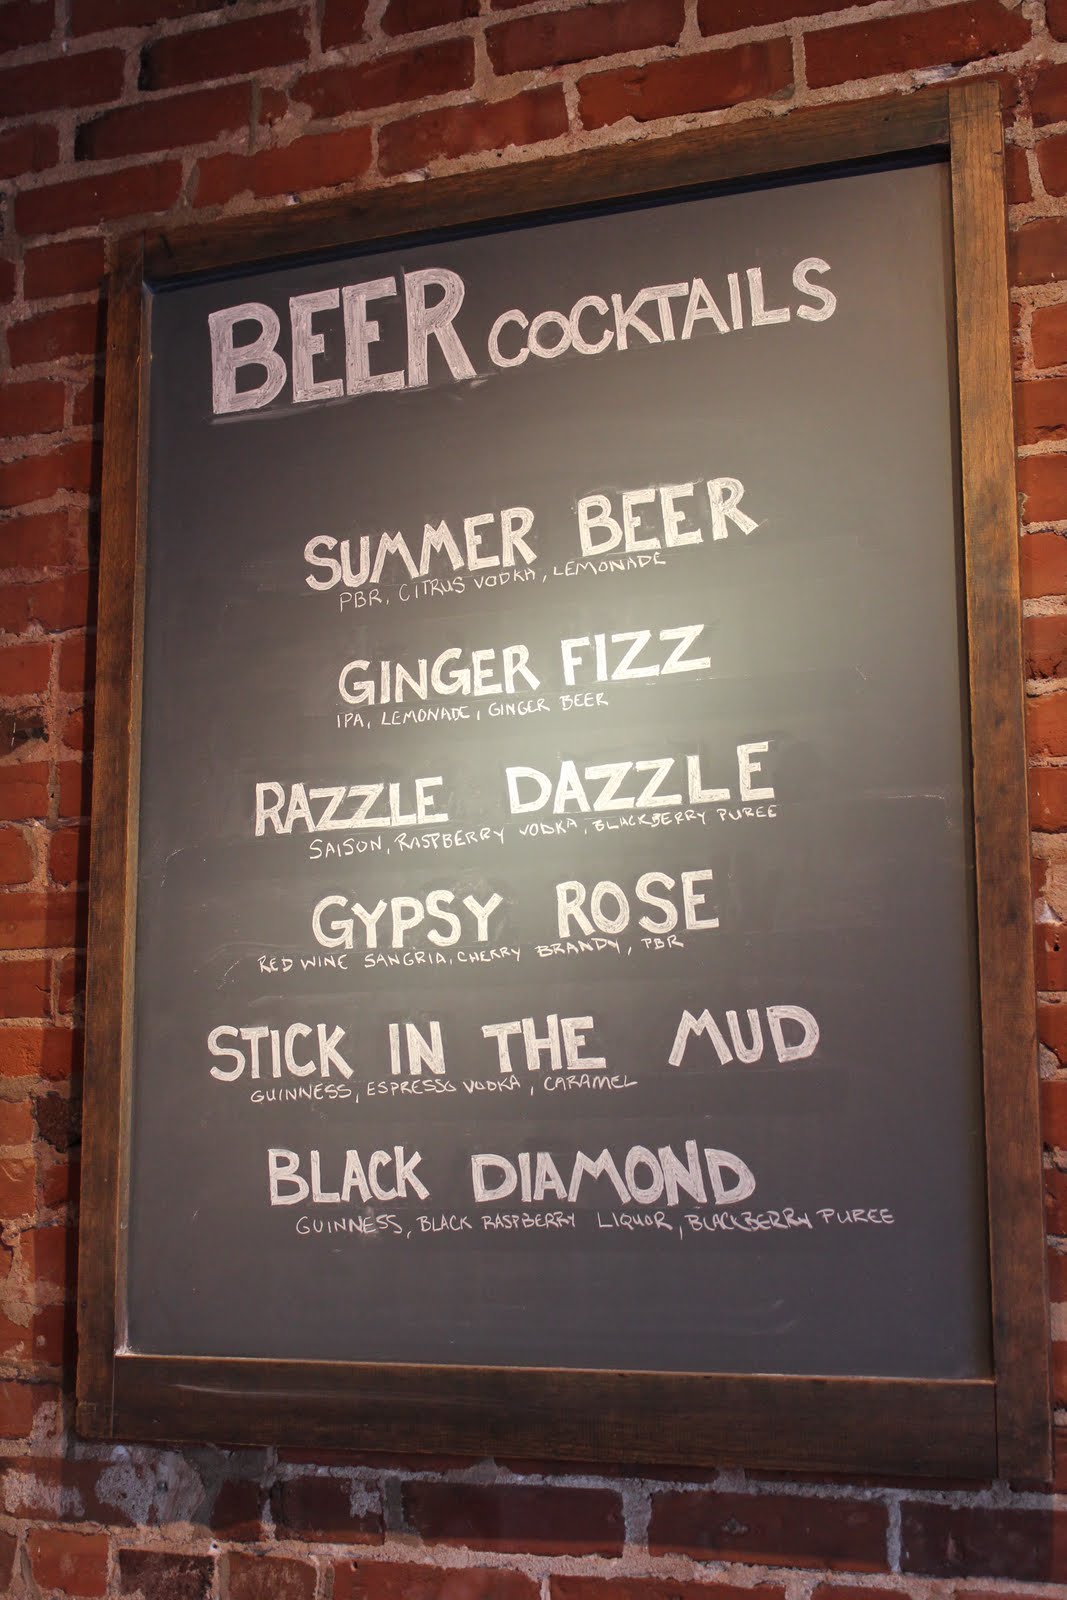 BEER COCKTAILS
SUMMER BEER
PBR, CITRUS VODKA, LEMONADE
GINGER FIZZ
IPA, LEMONADE, GINGER BEER
RAZZLE DAZZLE
SAISON, RASPBERRY VODKA, BLACKBERRY PUREE
GYPSY ROSE
RED WINE SANGRIA, CHERRY BRANDY, PBR
STICK IN THE MUD
GUINNESS, ESPRESSO VODKA, CARAMEL
BLACK DIAMOND
GUINNESS, BLACK RASPBERRY LIQUOR, BLACKBERRY PUREE